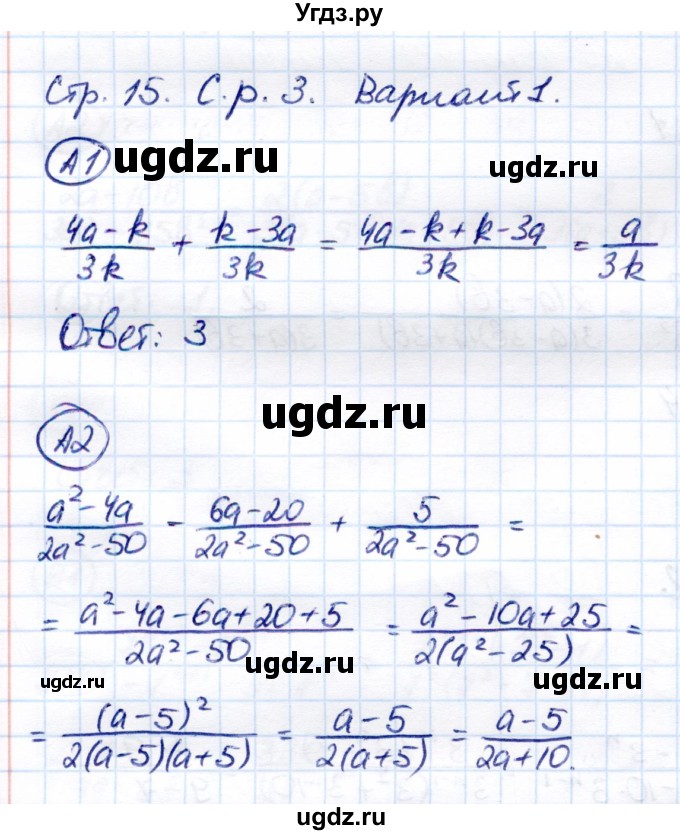 Угдз.ру
Стр. 15. С.р. 3. Вариант 1.
А1 ugdz.ru ugdz.ru
(4a-k)/3k + (k-3a)/3k = (4a-k+k-3a)/3k = a/3k
Ответ: 3
ugdz.ru
А2
(a²-4a)/(2a²-50) - (6a-20)/(2a²-50) + 5/(2a²-50) =
= (a²-4a-6a+20+5)/(2a²-50) = (a²-10a+25)/(2(a²-25)) =
ugdz.ru ugdz.ru ugdz.ru
= (a-5)²/(2(a-5)(a+5)) = (a-5)/(2(a+5)) = (a-5)/(2a+10).
ugdz.ru